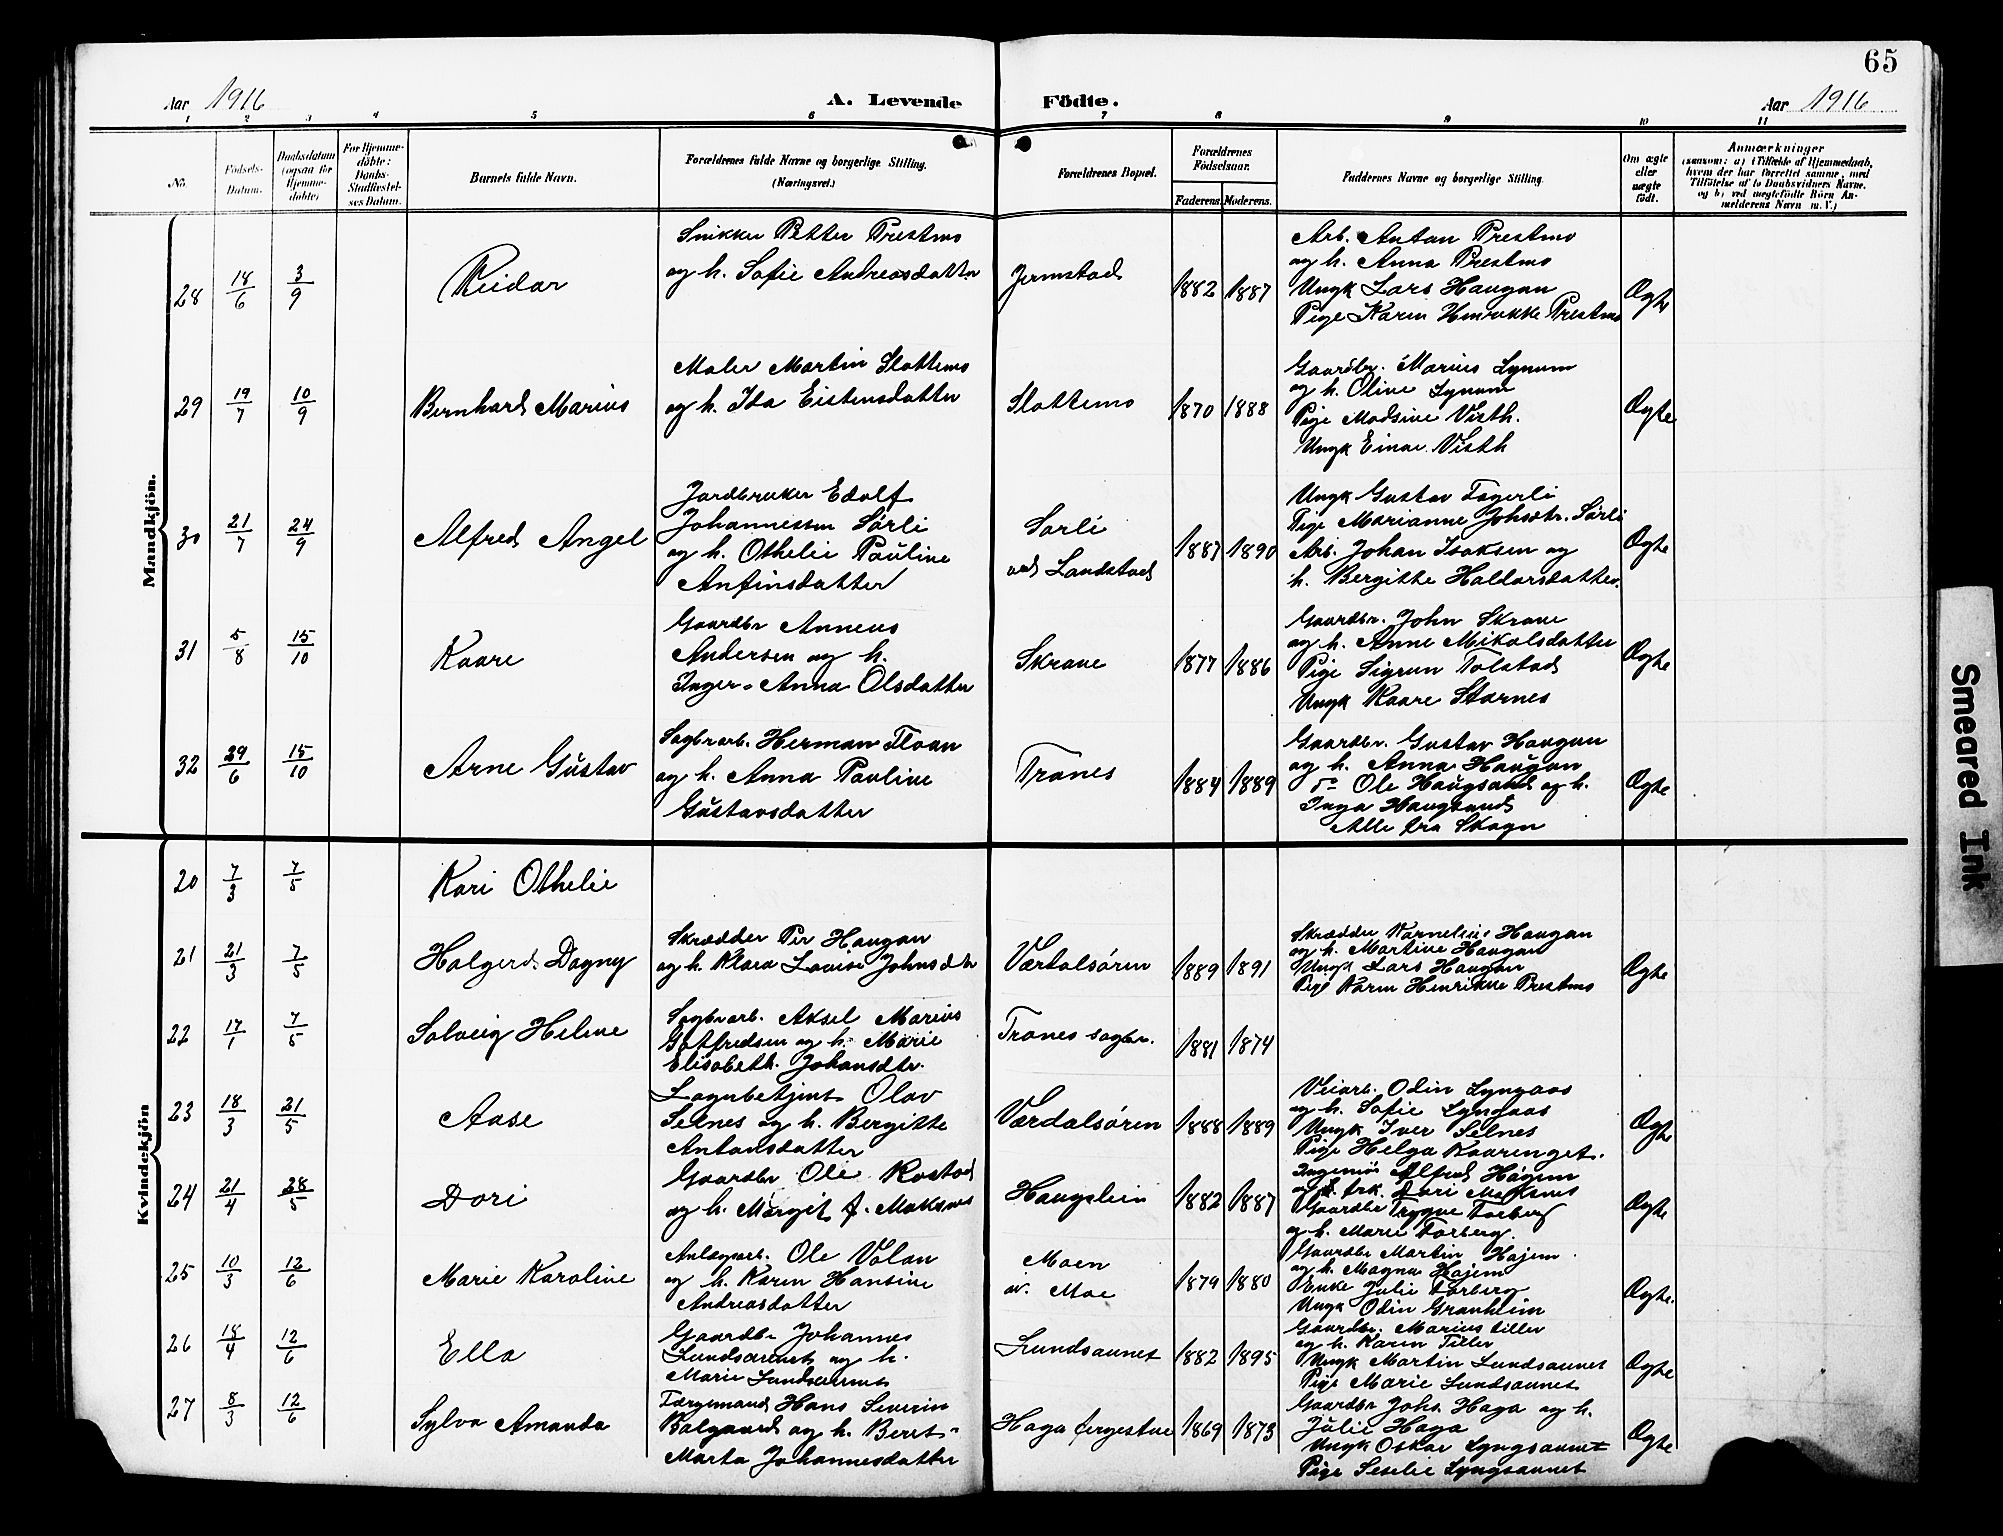 65
Aar 1916 A. Levende Födte. Aar 1916
1 2 3 4 5 6 7 8 9 10 11
No.
Födsels-
Datum.
Daabsdatum
(ogsaa for
Hjemme-
døbte)
For Hjemme-
döbte:
Daabs-
Stadfæstel-
ses Datum.
Barnets fulde Navn.
Forældrenes fulde Navne og borgerlige Stilling.
(Næringsvei.)
Forældrenes Bopæl.
Forældrenes
Födselsaar.
Faderens. Moderens.
Faddernes Navne og borgerlige Stilling.
Om ægte
eller
uægte
født.
Anmærkninger
(saasom: a) i Tilfælde af Hjemmedaab,
hvem der har forrettet samme, med
Tilföielse af to Daabsvidners Navne,
og b) ved uægtefödte Börn An-
melderens Navn m. V.)
Mandkjön.
28 18/6 3/9 Reidar
Snikker Petter Prestmo
og h. Sofie Andreasdatter
Jermstad 1882 1887
Arb. Anton Prestmo
og h. Anna Prestmo
Ungk Lars Haugan
Pige Karen Henrikke Prestmo
Ægte
29 19/7 10/9 Bernhard Marius
Maler Martin Slottemo
og h. Ida Eistensdatter
Slottemo 1870 1888
Gaardbr. Marius Lynum
og h. Oline Lynum
Pige Madsine Visth.
Ungk Einar Visth
Ægte
30 21/7 24/9 Alfred Angel
Jordbruker Edolf
Johannessen Sørli
og h. Othelie Pauline
Anfinsdatter
Sørli
ved Landstad
1887 1890
Ungk Gustav Fagerli
Pige Marianne Johsdtr. Sørli
Arb. Johan Isaksen og
h. Bergitte Haldorsdatter.
Ægte
31 5/8 15/10 Kaare
Gaardbr Anneus
Andersen og h.
Inger-Anna Olsdatter
Skrove 1877 1886
Gaardbr. John Skrove
og h. Anne Mikalsdatter
Pige Sigrun Tolstad
Ungk Kaare Stornes
Ægte
32 29/6 15/10 Arne Gustav
Sagbrarb. Herman Floan
og h. Anna Pauline
Gustavsdatter
Trones 1884 1889
Gaardbr. Gustav Haugan
og h. Anna Haugan
Do Ole Haugsand og h.
Inga Haugsand
Alle fra Skogn
Ægte
Kvindekjön
20 7/3 7/5 Kari Othelie
21 21/3 7/5 Holgerd. Dagny
Skrædder Per Haugan
og h. Klara Lovise Johnsdtr
Værdalsøren 1889 1891
Skrædder Kornelius Haugan
og h. Martine Haugan
Ungk Lars Haugan
Pige Karen Henrikke Prestmo
Ægte
22 17/1 7/5 Solveig Helene
Sagbrarb. Aksel Marius
Gotfredsen og h. Marie
Elisabeth. Johansdtr.
Trones sagbr. 1881 1874
23 18/3 21/5 Aase
Lagerbetjent Olav
Selnes og h. Bergitte
Antonsdatter
Værdalsøren 1888 1889
Veiarb. Odin Lyngaas
og h. Sofie Lyngaas
Ungk Iver Selnes
Pige Helga Kvarenget.
Ægte
24 21/4 28/5 Dori
Gaardbr Ole Rostad
og h. Margit f. Moksnes
Haugslein 1882 1887
Ingeniør Alfred Hagem
og frk. Dori Moksnes
Gaardbr Trygve Forberg
og h. Marie Forberg.
Ægte
25 10/3 12/6 Marie Karoline
Anlægsarb. Ole Volan
og h. Karen Hansine
Andreasdatter
Moen
v. Moe
1879 1880
Gaardbr Martin Hojem.
og h. Magna Hojem
Enke Julie Forberg
Ungk Odin Granheim
Ægte.
26 18/4 12/6 Ella
Gaardbr Johannes
Lundsaunet og h.
Marie Lundsaunet
Lundsaunet 1882 1895
Gaardbr. Marius Tiller
og h. Karen Tiller
Ungk Martin Lundsaunet
Pige Marie Lundsaunet
Ægte
27 8/3 12/6 Sylva Amanda
Færgemand Hans Severin
Balgaard og h. Beret-
Marta Johannesdatter
Haga færgestue 1869 1873
Gaardbr Johs. Haga og h.
Julie Haga
Ungk Oskar Lyngsaunet
Pige Seselie Lyngsaunet
Ægte
Smeared Ink